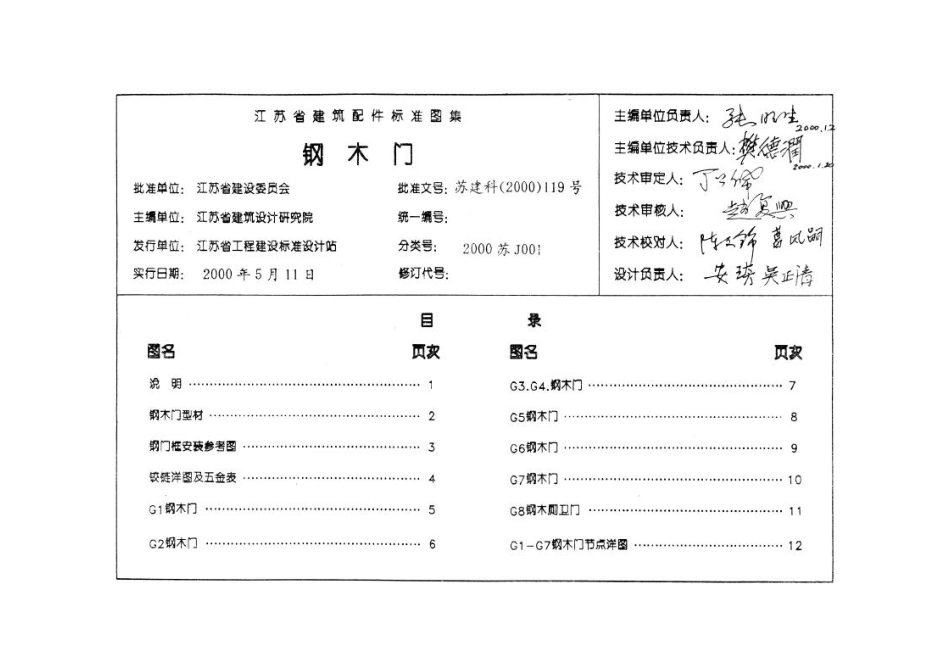 江苏省建筑配件标准图集
钢 木 门
批准单位: 江苏省建设委员会 批准文号: 苏建科(2000)119号
主编单位: 江苏省建筑设计研究院 统一编号:
发行单位: 江苏省工程建设标准设计站 分类号: 2000 苏J001
实行日期: 2000 年 5 月 11 日 修订代号:
主编单位负责人:
2000.1.2
主编单位技术负责人: 樊德润
2000.1.20
技术审定人:
技术审核人:
技术校对人: 葛凤嗣
设计负责人: 安琦 吴正清
目 录
图名 页次
说 明 1
钢木门型材 2
钢门框安装参考图 3
铰链详图及五金表 4
G1钢木门 5
G2钢木门 6
图名 页次
G3.G4.钢木门 7
G5钢木门 8
G6钢木门 9
G7钢木门 10
G8钢木厕卫门 11
G1-G7钢木门节点详图 12